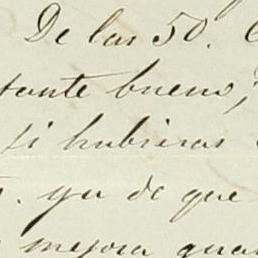 De las 50.
tante bueno;
si hubieras
ya de que
mejora